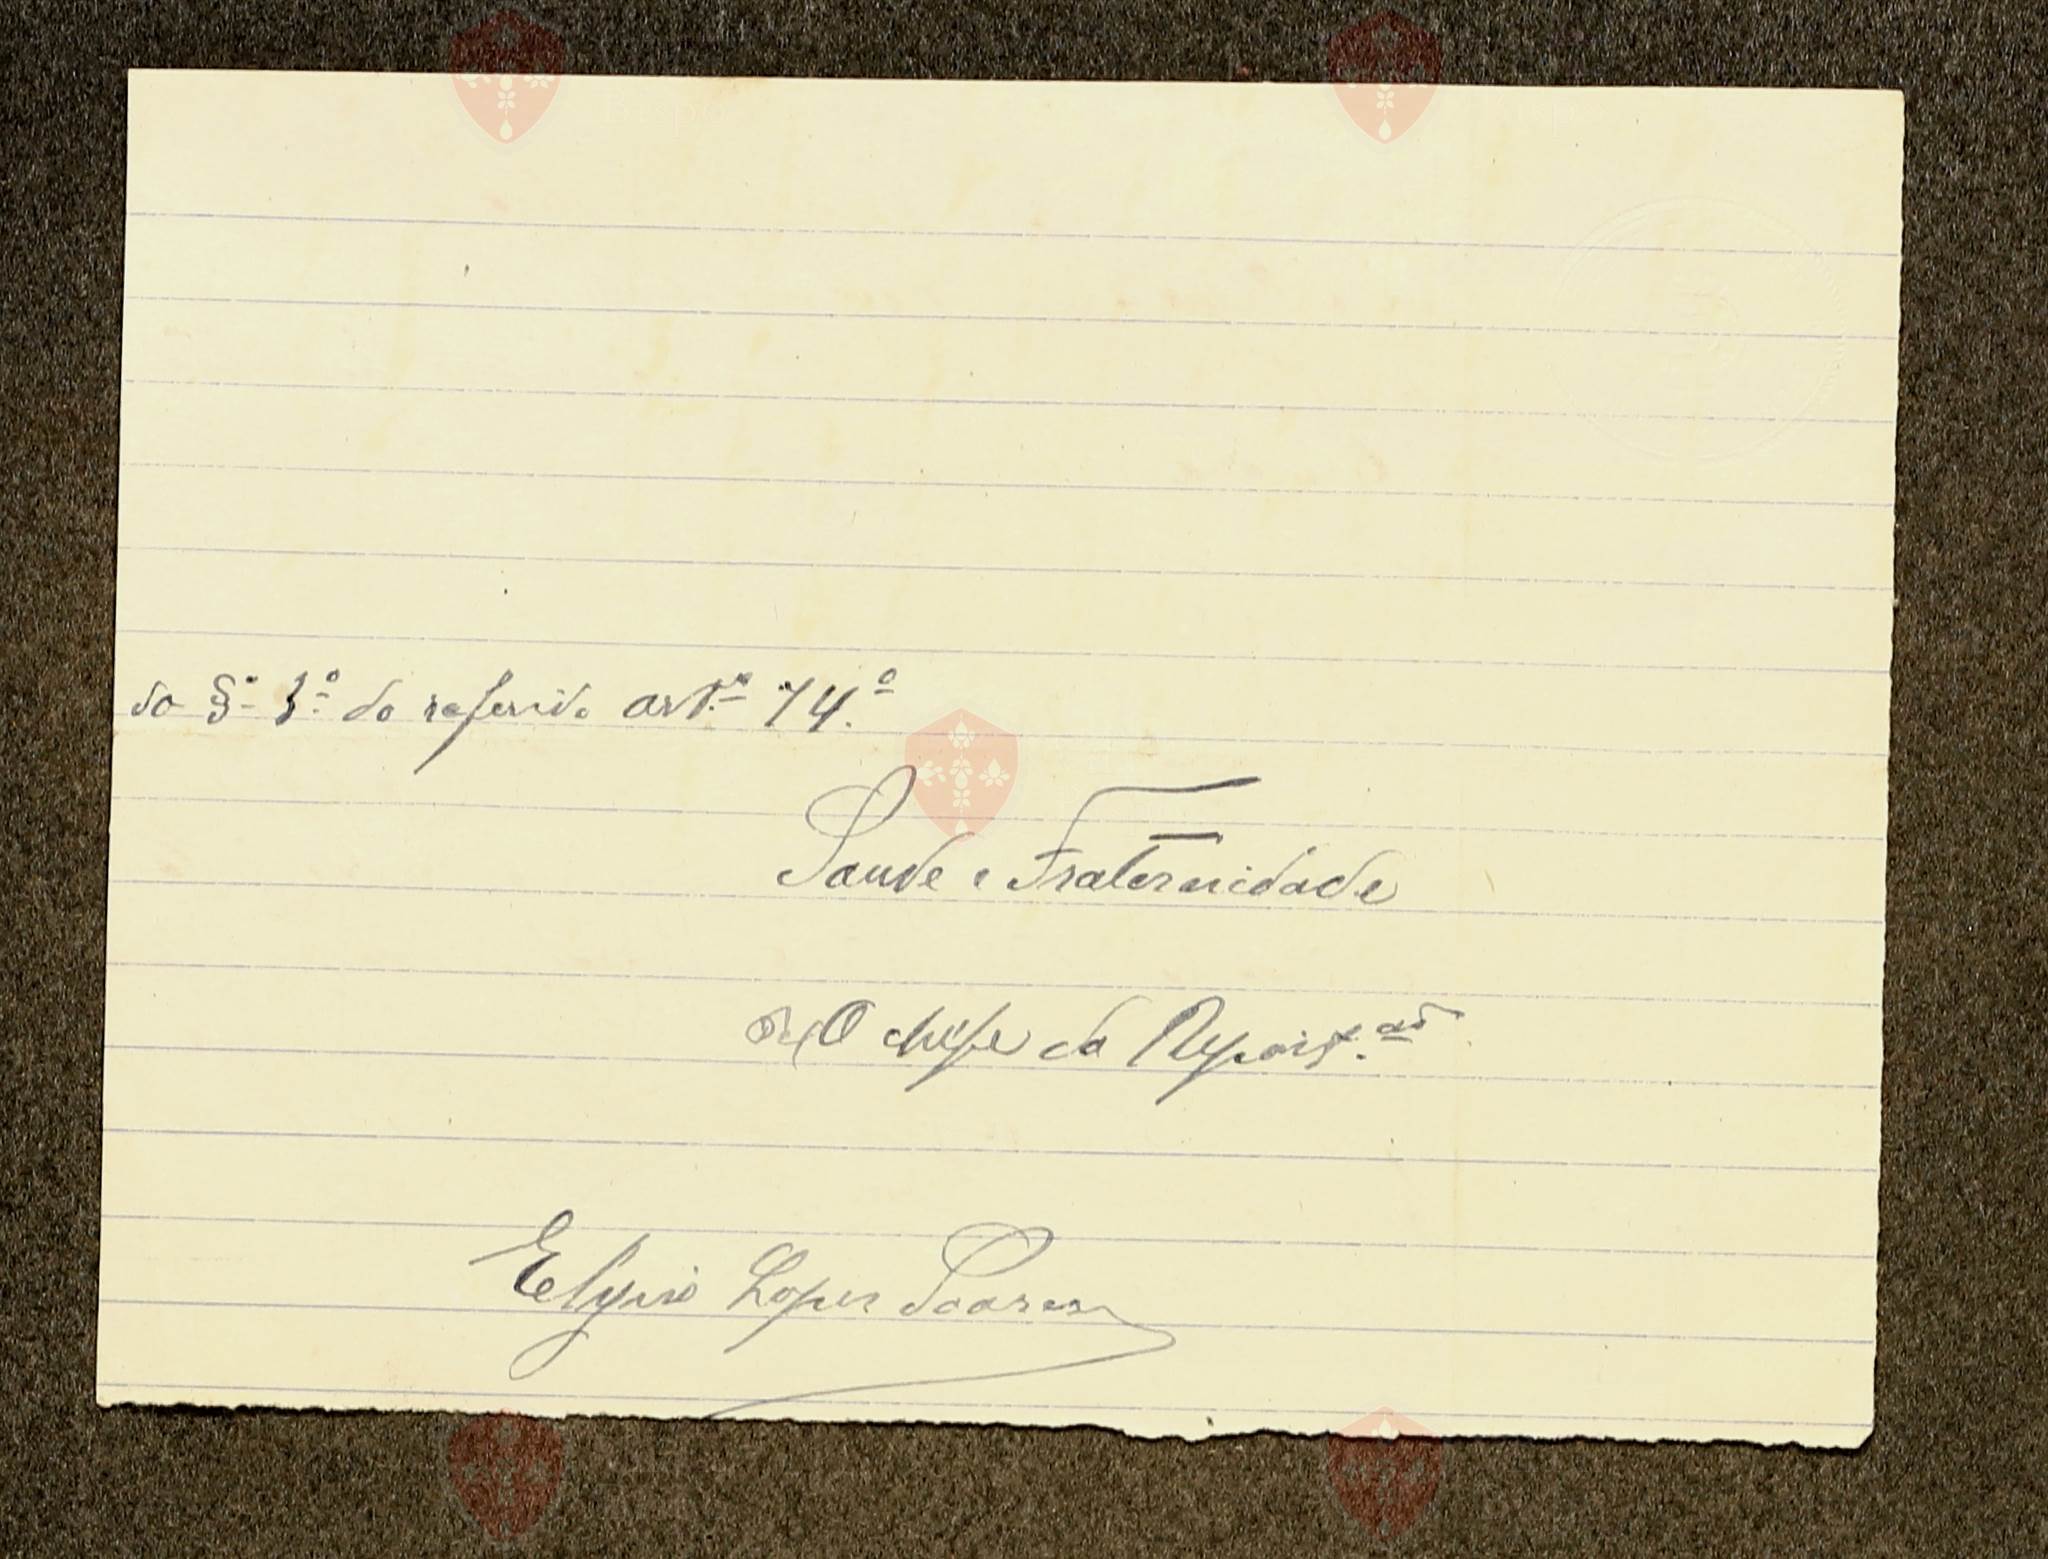 do §.º 1.º do referido art.º 74.º
Saude e Fraternidade
O chefe da Repart.ão
Elysio Lopes Soares